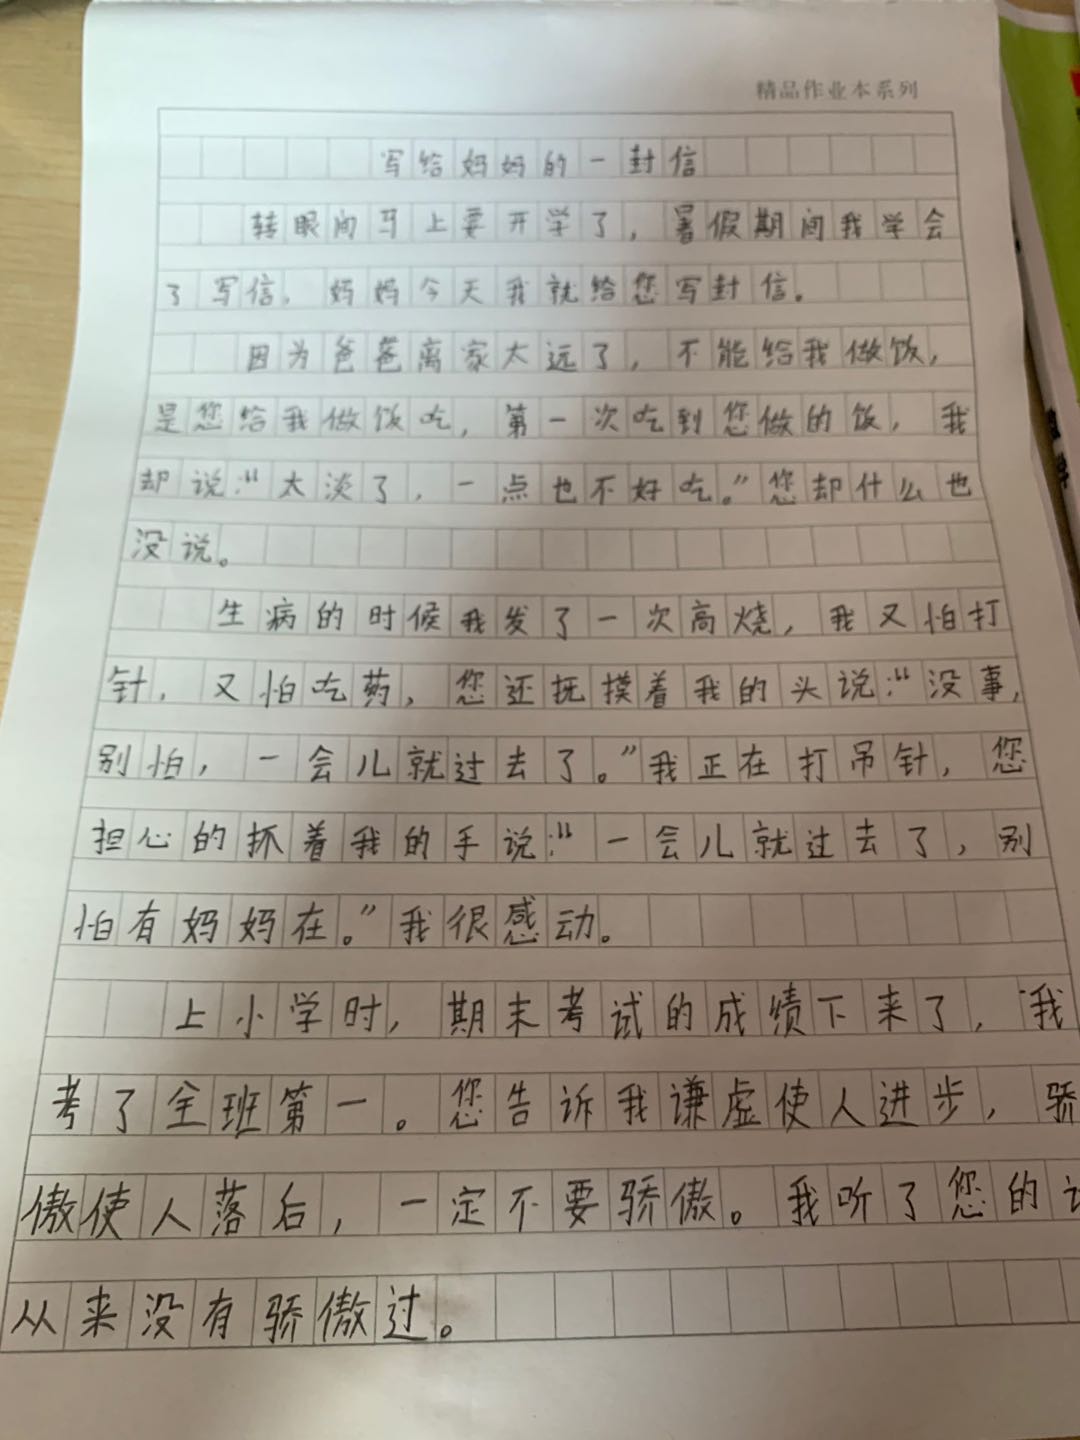 精品作业本系列
写给妈妈的一封信
转眼间马上要开学了，暑假期间我学会
了写信，妈妈今天我就给您写封信。
因为爸爸离家太远了，不能给我做饭，
是您给我做饭吃，第一次吃到您做的饭，我
却说：“太淡了，一点也不好吃。”您却什么也
没说。
生病的时候我发了一次高烧，我又怕打
针，又怕吃药，您还抚摸着我的头说：“没事，
别怕，一会儿就过去了。”我正在打吊针，您
担心的抓着我的手说：“一会儿就过去了，别
怕有妈妈在。”我很感动。
上小学时，期末考试的成绩下来了，我
考了全班第一。您告诉我谦虚使人进步，骄
傲使人落后，一定不要骄傲。我听了您的
从来没有骄傲过。